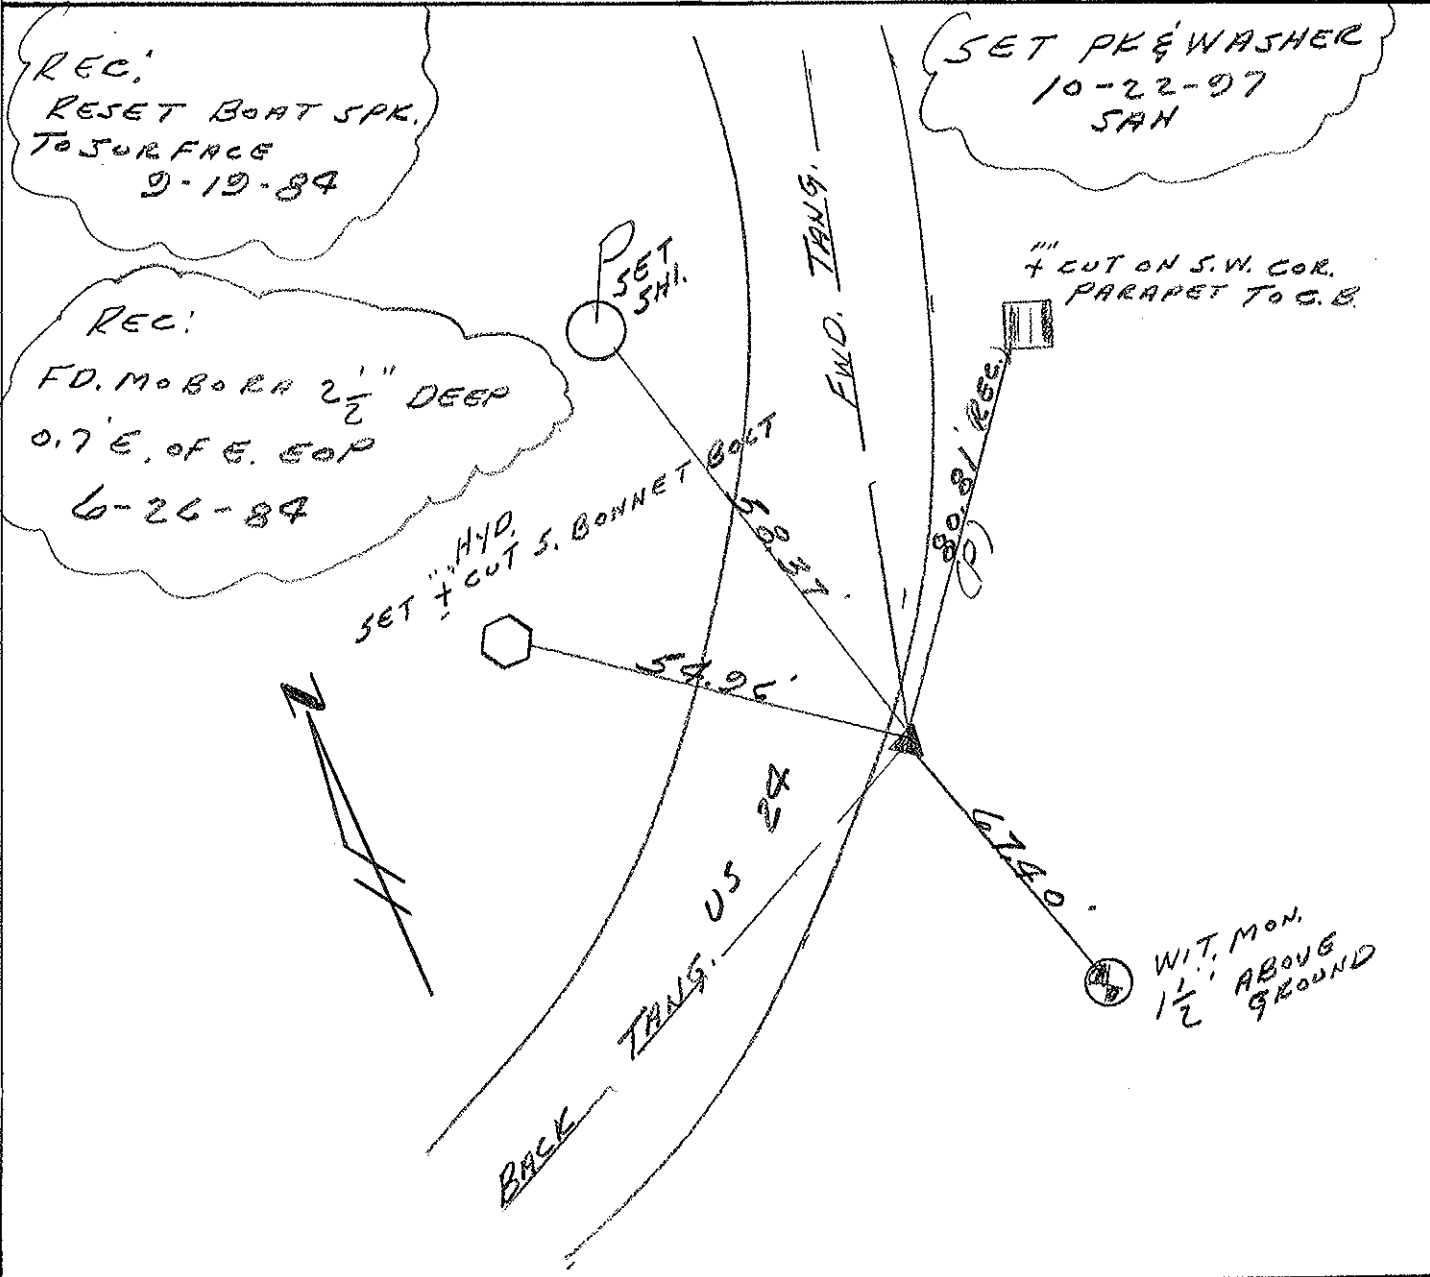 REC:
RESET BOAT SPK.
TO SURFACE
9-19-84
SET PK & WASHER
10-22-97
SAH
REC:
FD. MOBORA 2 1/2" DEEP
0.7' E. OF E. EOP
6-26-84
P
SET
SHI.
FWD. TANG.
"+" CUT ON S.W. COR.
PARAPET TO C.B.
80.81' REC.
(P)
58.37'
HYD.
SET "+" CUT S. BONNET BOLT
54.96'
N
US 24
BACK TANG.
67.40'
WIT. MON.
1 1/2" ABOVE
GROUND